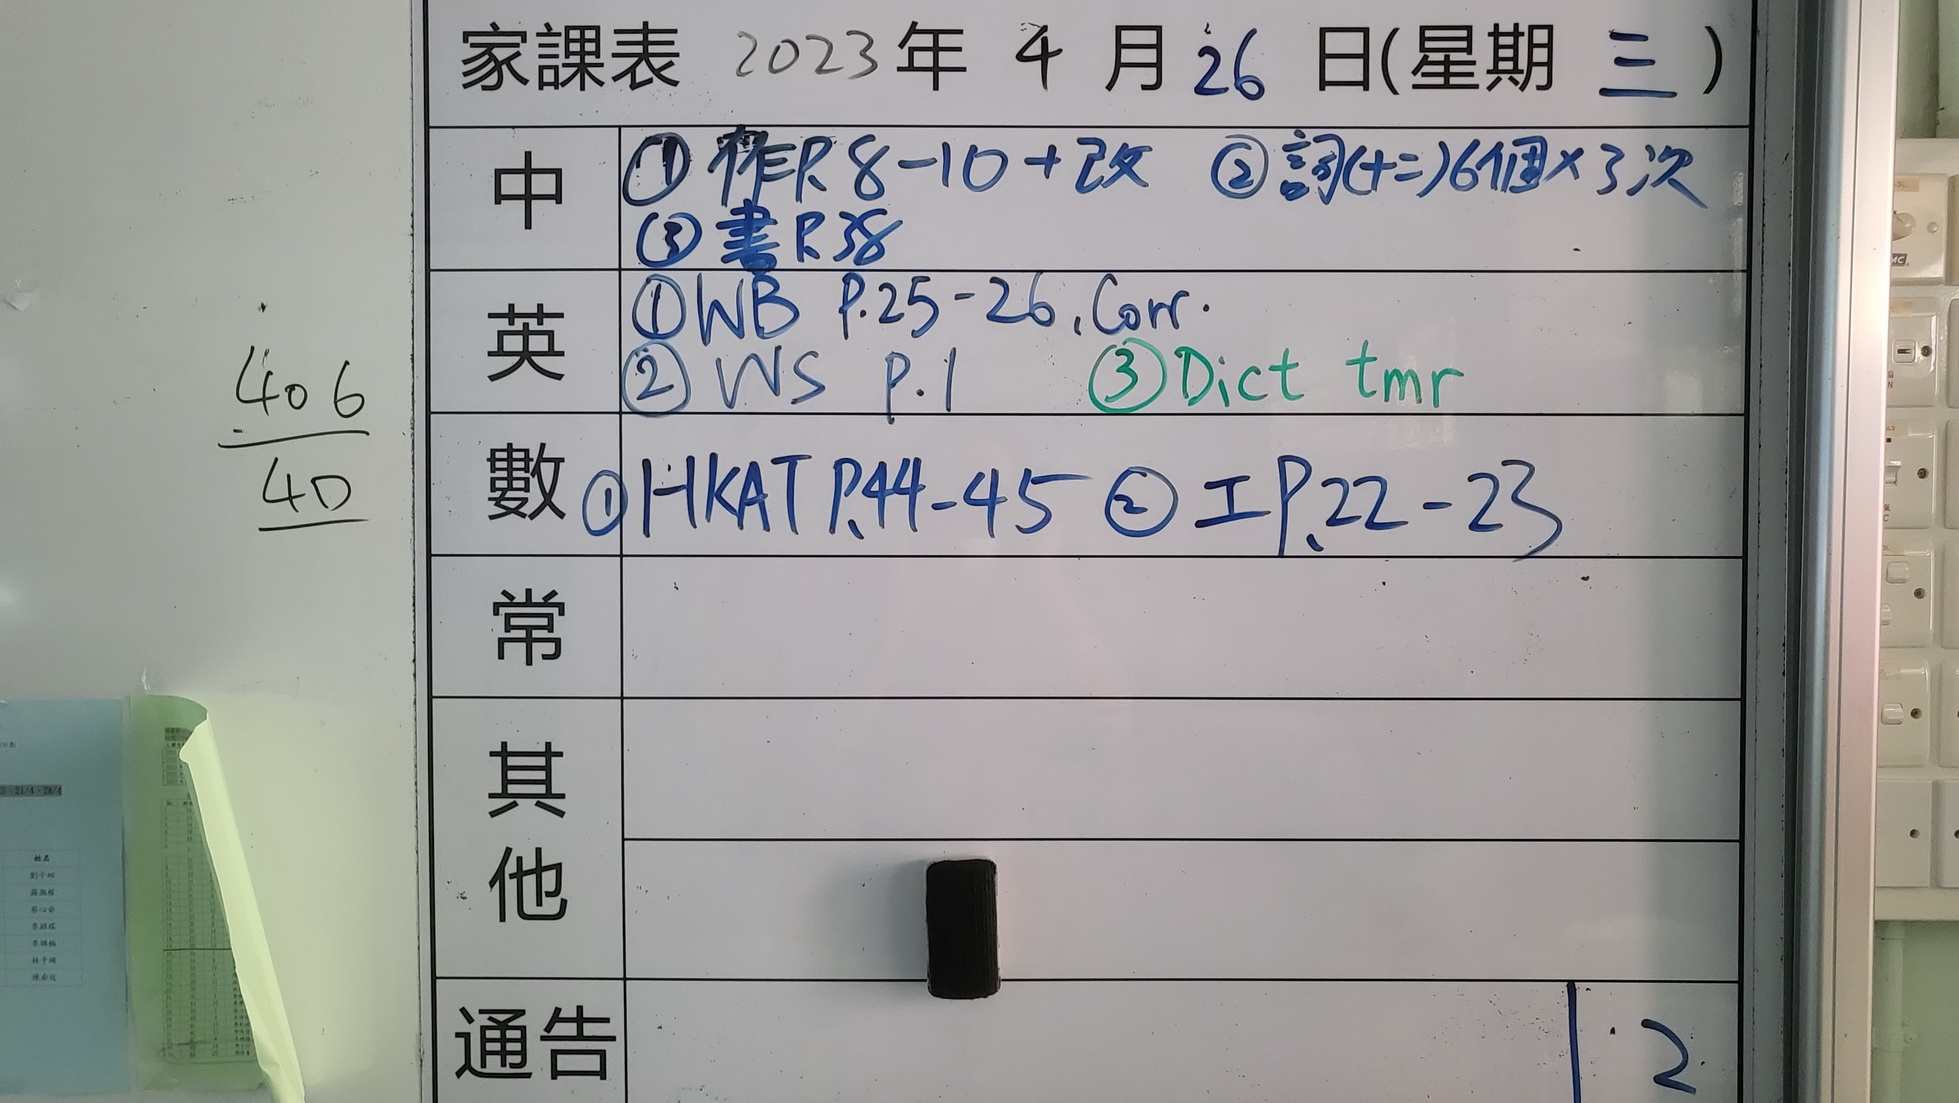 家課表 2023年 4 月 26 日(星期 三 )
中
① 作P.8-10+改 ② 詞(十二)6個×3次
③ 書P.38
英
① WB P.25-26, Corr.
② WS p.1 ③ Dict tmr
數
① HKAT P.44-45 ② 工P.22-23
常
其他
通告
2
406
40
姓名